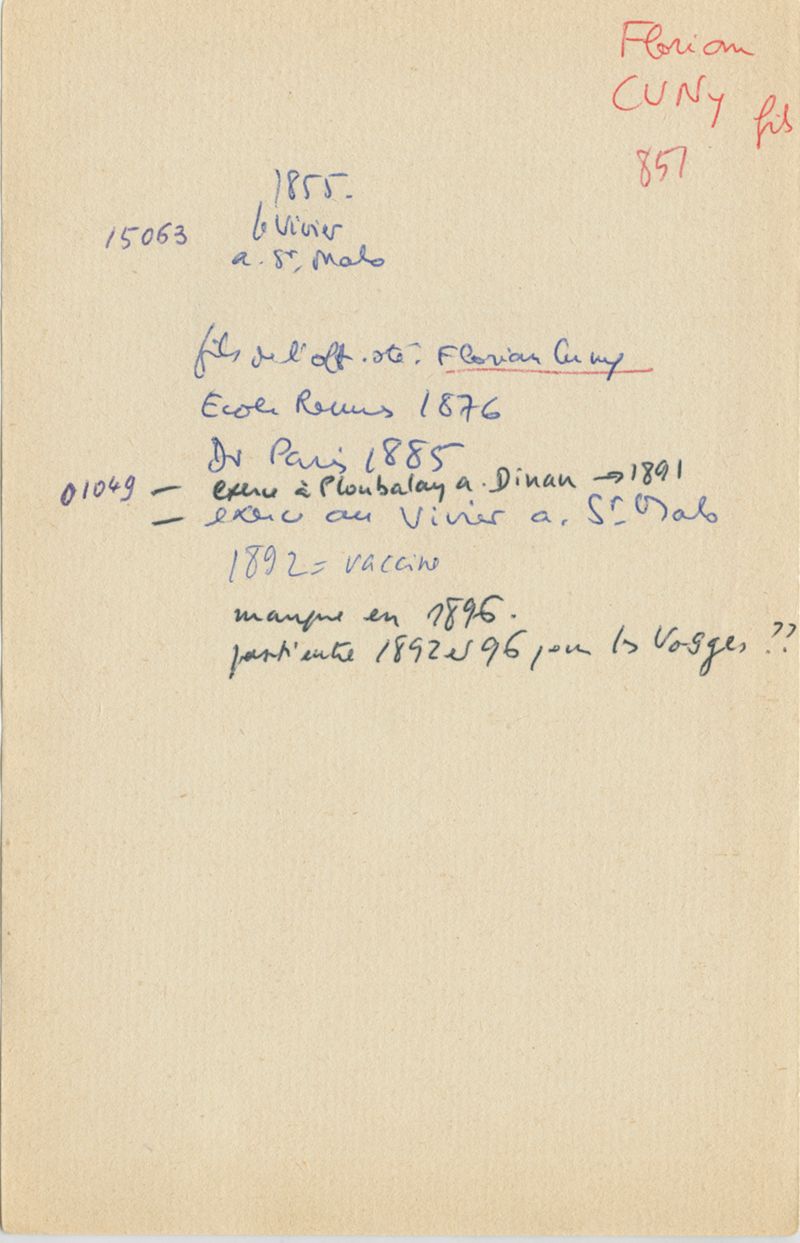 Florian
CUNY fils
851
1855.
15063 le Vivier
a. St. Malo
fils de l'off. sté. Florian Cuny
Ecole Rennes 1876
Dr Paris 1885
01049 — exerce à Ploubalay a. Dinan → 1891
— exerce au Vivier a. St. Malo
1892 = vaccine
manque en 1896.
parti entre 1892 et 96 pour les Vosges ??